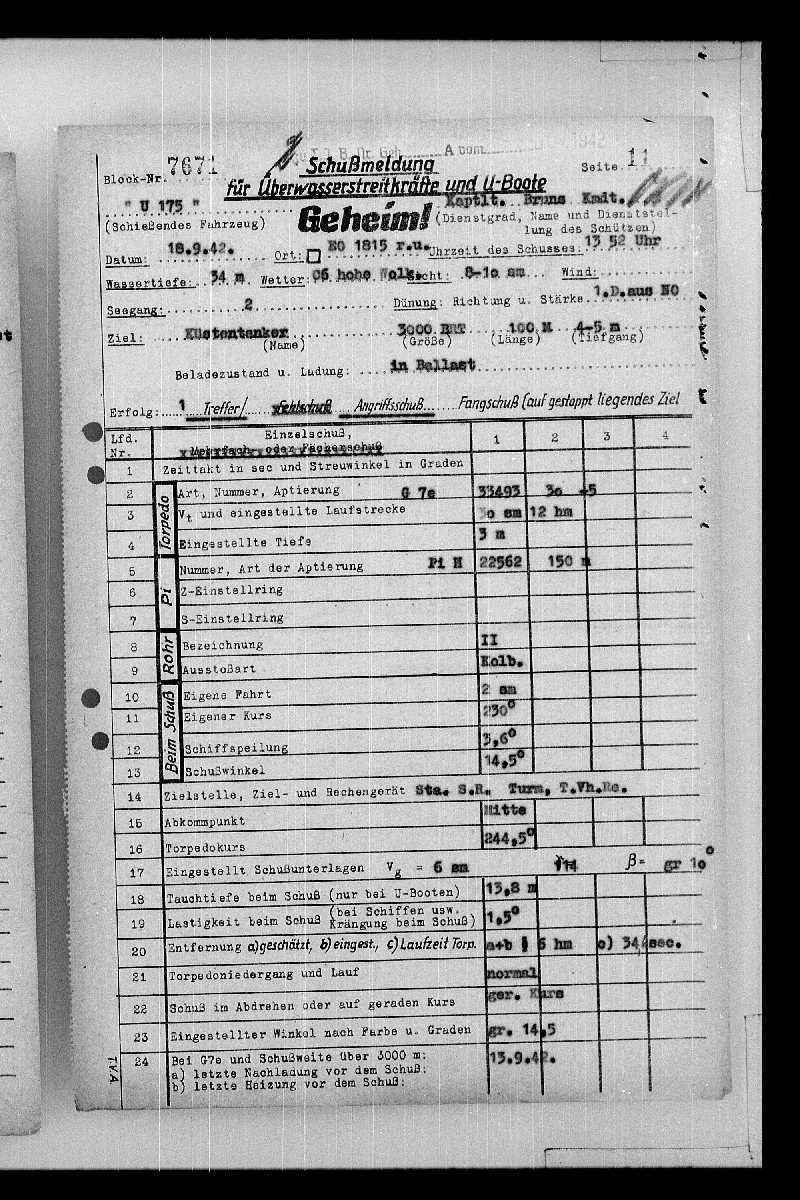 A vom
Block-Nr. 7671
Schußmeldung
für Überwasserstreitkräfte und U-Boote
Seite 11
" U 175 "
(Schießendes Fahrzeug)
Geheim!
Kaptlt. Bruns Kmdt.
(Dienstgrad, Name und Dienststel-
lung des Schützen)
Datum: 18.9.42. Ort: EO 1815 r.u. Uhrzeit des Schusses: 13 52 Uhr
Wassertiefe: 34 m Wetter: C6 hohe Wolk. Sicht: 8-10 sm Wind:
Seegang: 2 Dünung: Richtung u. Stärke 1.D.aus NO
Ziel: Küstentanker 3000 BRT 100 M 4-5 m
(Name) (Größe) (Länge) (Tiefgang)
Beladezustand u. Ladung: in Ballast
Erfolg: 1 Treffer/ Fehlschuß Angriffsschuß Fangschuß (auf gestoppt liegendes Ziel
Lfd. Nr. Einzelschuß, Mehrfach oder Fächerschuß 1 2 3 4
1 Zeittakt in sec und Streuwinkel in Graden
Torpedo
2 Art, Nummer, Aptierung G 7e 33493 30 +5
3 Vt und eingestellte Laufstrecke 30 sm 12 hm
4 Eingestellte Tiefe 3 m
Pi
5 Nummer, Art der Aptierung Pi H 22562 150 m
6 Z-Einstellring
7 S-Einstellring
Rohr
8 Bezeichnung II
9 Ausstoßart Kolb.
Beim Schuß
10 Eigene Fahrt 2 sm
11 Eigener Kurs 230°
12 Schiffspeilung 3,6°
13 Schußwinkel 14,5°
14 Zielstelle, Ziel- und Rechengerät Sta. S.R. Turm, T.Vh.Re.
15 Abkommpunkt Mitte
16 Torpedokurs 244,5°
17 Eingestellt Schußunterlagen Vg = 6 sm β= gr 10°
18 Tauchtiefe beim Schuß (nur bei U-Booten) 13,8 m
19 Lastigkeit beim Schuß (bei Schiffen usw. Krängung beim Schuß) 1,5°
20 Entfernung a)geschätzt, b)eingest., c)Laufzeit Torp. a+b 6 hm c) 34 sec.
21 Torpedoniedergang und Lauf normal
22 Schuß im Abdrehen oder auf geraden Kurs ger. Kurs
23 Eingestellter Winkel nach Farbe u. Graden gr. 14,5
24 Bei G7e und Schußweite über 3000 m: 13.9.42.
a) letzte Nachladung vor dem Schuß:
b) letzte Heizung vor dem Schuß:
TVA